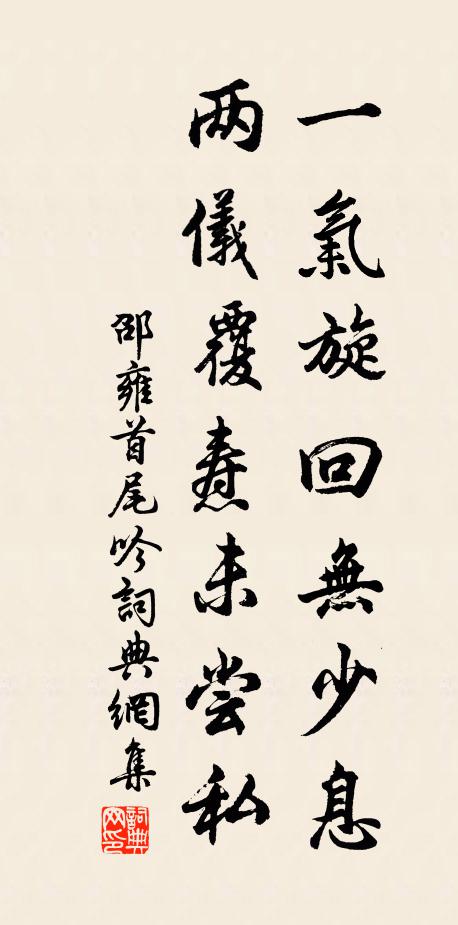 一氣旋回無少息
两儀覆焘未尝私
邵雍首尾吟詞典網集
詞典網印